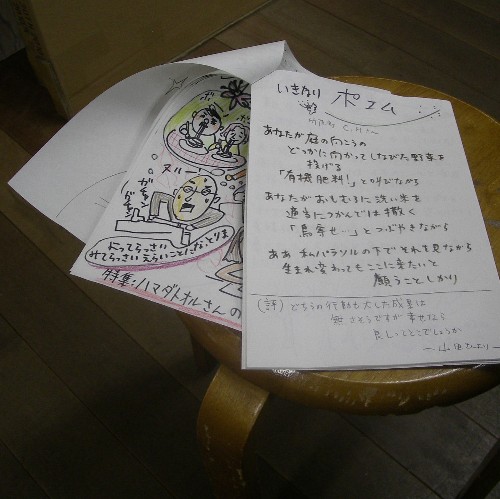 いきなり
ポエム
C.H.
あなたが庭の向こうの
どっかに向かってしなびた野菜を
投げる
「有機肥料!」と叫びながら
あなたがおもむろに洗い米を
適当につかんでは撒く
「鳥寄せ…」とつぶやきながら
ああ 私パラソルの下でそれを見ながら
生まれ変わってもここに来たいと
願うことしかり
(評) どちらの行動も大した成果は
無さそうですが幸せなら
良しってとこでしょうか
ヌルー
ガチャン
みてらっさい えらいことになっとりま
特集:ハマダトオルさんの